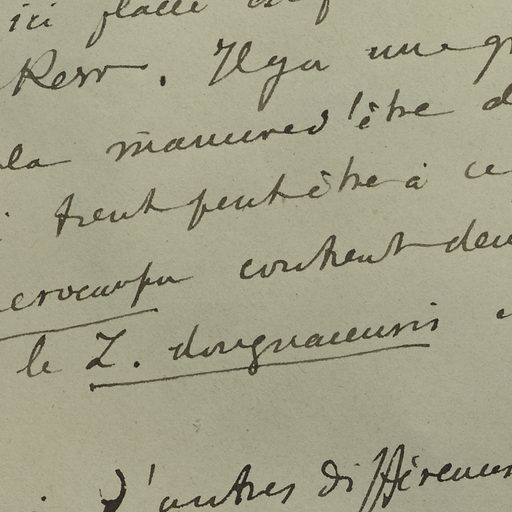 ici placé
Kerr. Il y a une
la manière d'être
tient peut être à ce
erocarpa contient deu
le Z. dongnaiensis
d'autres différences